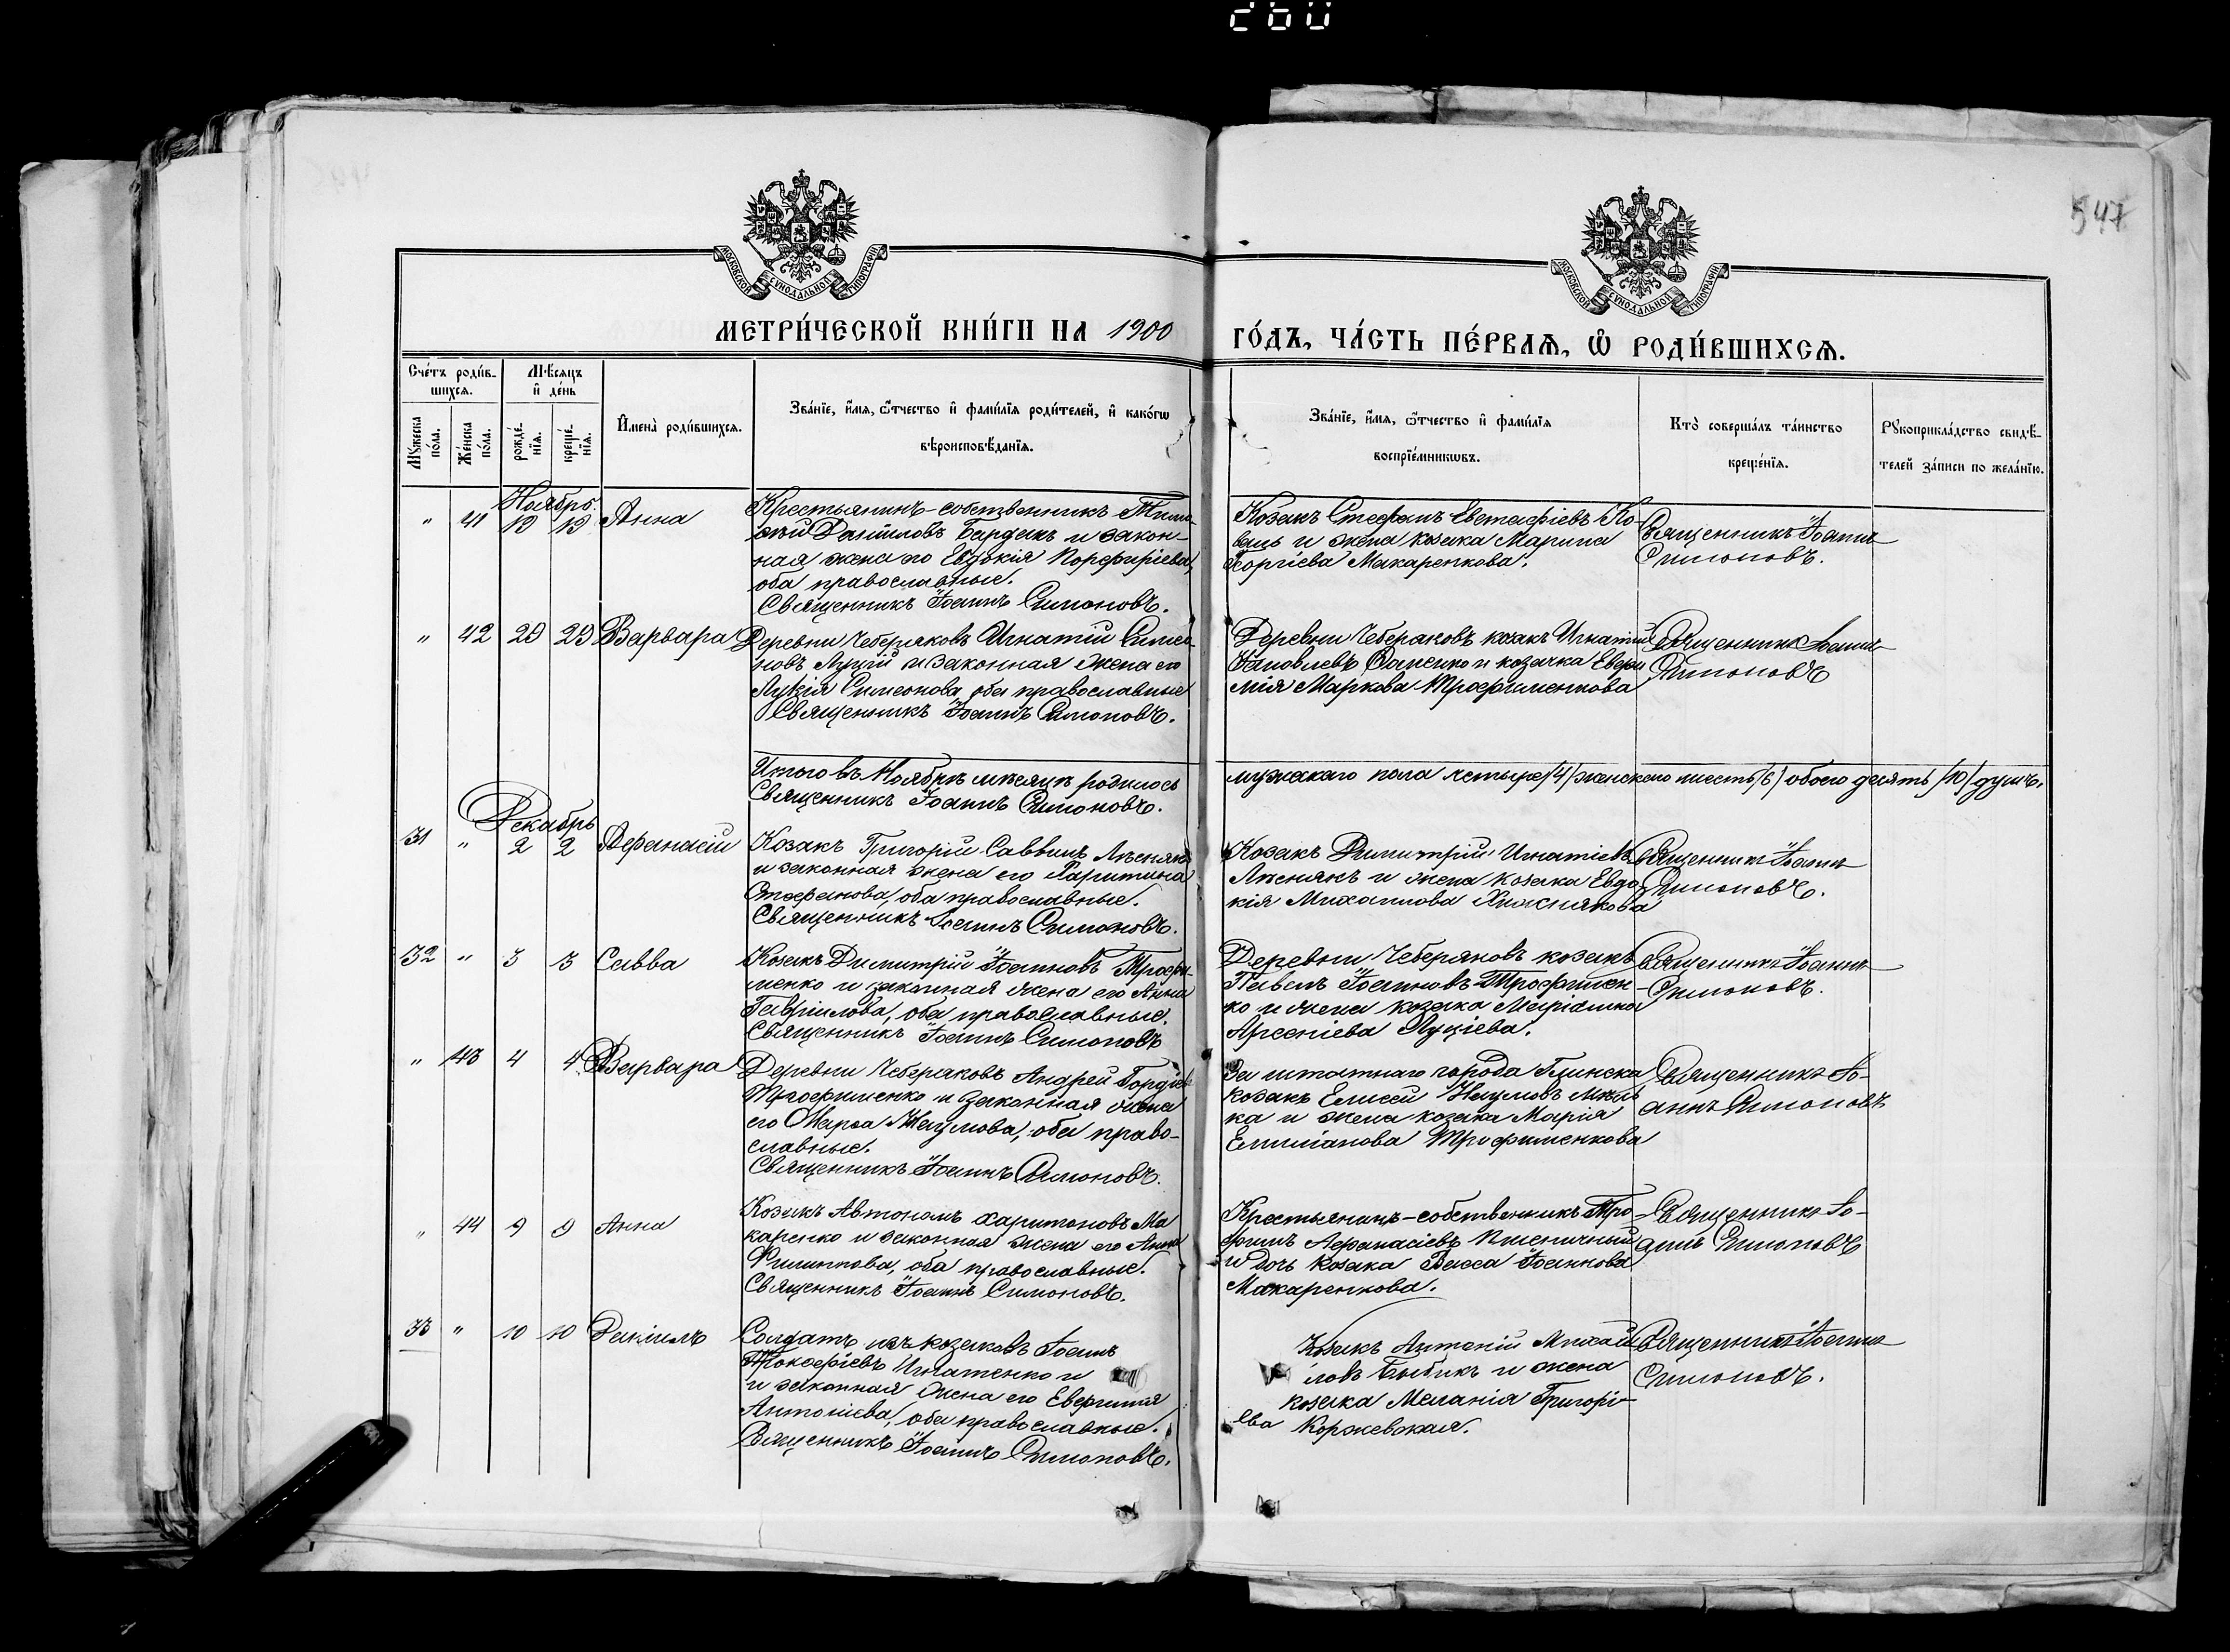 260
547
МОСКОВСКОЙ СУНОДАЛЬНОЙ ТИПОГРАФІИ
МОСКОВСКОЙ СУНОДАЛЬНОЙ ТИПОГРАФІИ
МЕТРИ́ЧЕСКОЙ КНИ́ГИ НА 1900 ГО́ДЪ, ЧА́СТЬ ПЕ́РВАѦ, Ѽ РОДИ́ВШИХСѦ.
Сче́тъ роди́в-
шихсѧ.
Мѣ́сѧцъ
и҆ де́нь
Мꙋ́жеска
по́ла.
Же́нска
по́ла.
рожде́-
нїѧ.
креще́-
нїѧ.
И҆мена̀ роди́вшихсѧ.
Зва́нїе, и҆́мѧ, ѻ҆́тчество и҆ фами́лїѧ роди́телей, и҆ како́гѡ
вѣроисповѣ́данїѧ.
Зва́нїе, и҆́мѧ, ѻ҆́тчество и҆ фами́лїѧ
воспрїе́мникѡвъ.
Кто̀ соверша́лъ та́инство
креще́нїѧ.
Рꙋкоприкла́дство свидѣ́-
телей за́писи по жела́нїю.
Ноябрь.
" 41 19 19 Анна
Крестьянинъ-собственникъ Тимо-
ѳей Даніиловъ Бардакъ и закон-
ная жена его Евдокія Порфиріева,
оба православные.
Священникъ Іоаннъ Симоновъ.
Козакъ Стефанъ Евстафіевъ Ко-
валь и жена козака Марина
Георгіева Макаренкова.
Священникъ Іоаннъ
Симоновъ.
" 42 29 29 Варвара
Деревни Чеберяковъ Игнатій Симео-
новъ Луцій и законная жена его
Лукія Симеонова, оба православные
Священникъ Іоаннъ Симоновъ.
Деревни Чеберяковъ козакъ Игнатій
Іаковлевъ и козачка Евфи
мія Маркова Трофименкова
Священникъ Іоаннъ
Симоновъ
Итого въ Ноябрѣ мѣсяцѣ родилось
Священникъ Іоаннъ Симоновъ.
мужскаго пола четыре /4/ женскаго шесть /6/ обоего десять /10/ душъ.
Декабрь
31 " 2 2 Афанасій
Козакъ Григорій Саввинъ Лѣснякъ
и законная жена его Харитина
Стефанова, оба православные.
Священникъ Іоаннъ Симоновъ.
Козакъ Димитрій Игнатіевъ
Лѣснякъ и жена козака Евдо-
кія Михаилова Хижнякова
Священникъ Іоаннъ
Симоновъ.
32 " 3 3 Савва
Козакъ Димитрій Іоанновъ Трофи-
менко и законная жена его Анна
Гавріилова, оба православные.
Священникъ Іоаннъ Симоновъ
Деревни Чеберяковъ козакъ
Павелъ Іоанновъ Трофимен-
ко и жена козака Маріамна
Арсеніева Луціева.
Священникъ Іоаннъ
Симоновъ.
" 43 4 4 Варвара
Деревни Чеберяковъ Андрей Гордіевъ
Трофименко и законная жена
его Марфа Наумова, оба право-
славные.
Священникъ Іоаннъ Симоновъ.
За штатнаго города Глинска
козакъ Елисей Наумовъ
ка и жена козака Марія
Емиліанова Трофименкова
Священникъ Іо-
аннъ Симоновъ
" 44 9 9 Анна
Козакъ Автономъ Харитоновъ Ма
каренко и законная жена его Анна
Филиппова, оба православные.
Священникъ Іоаннъ Симоновъ.
Крестьянинъ-собственникъ Тро-
фимъ Афанасіевъ Пшеничный
и дочь козака Васса Іоаннова
Макаренкова.
Священникъ Іо-
аннъ Симоновъ
33 " 10 10 Даніилъ
Солдатъ изъ козаковъ Іоаннъ
Прокофіевъ Игнатенко и
и законная жена его Евфимія
Антоніева, оба православные.
Священникъ Іоаннъ Симоновъ.
Козакъ Антоній Михаи-
ловъ Бибикъ и жена
козака Меланія Григорі-
ева Коржевская.
Священникъ Іоаннъ
Симоновъ.